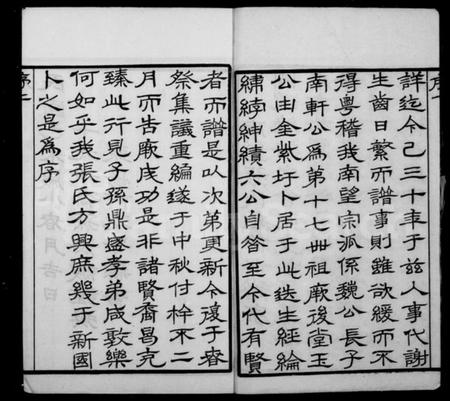 序一
詳迄今己三十年于兹人事代謝
生齒日繁而譜事則雖欲緩而不
得粤稽我南望宗派係魏公長子
南軒公為第十七世祖厥後堂玉
公由金紫圩卜居于此迭生經綸
繡綍紳績六公自答至今代有賢
者而譜是以次第更新今復于春
祭集議重編遂于中秋付梓不二
月而告厥成功是非諸賢裔昌克
臻此行見子孫鼎盛孝弟咸敦樂
何如乎我張氏方興庶幾于新國
卜之是為序
序二